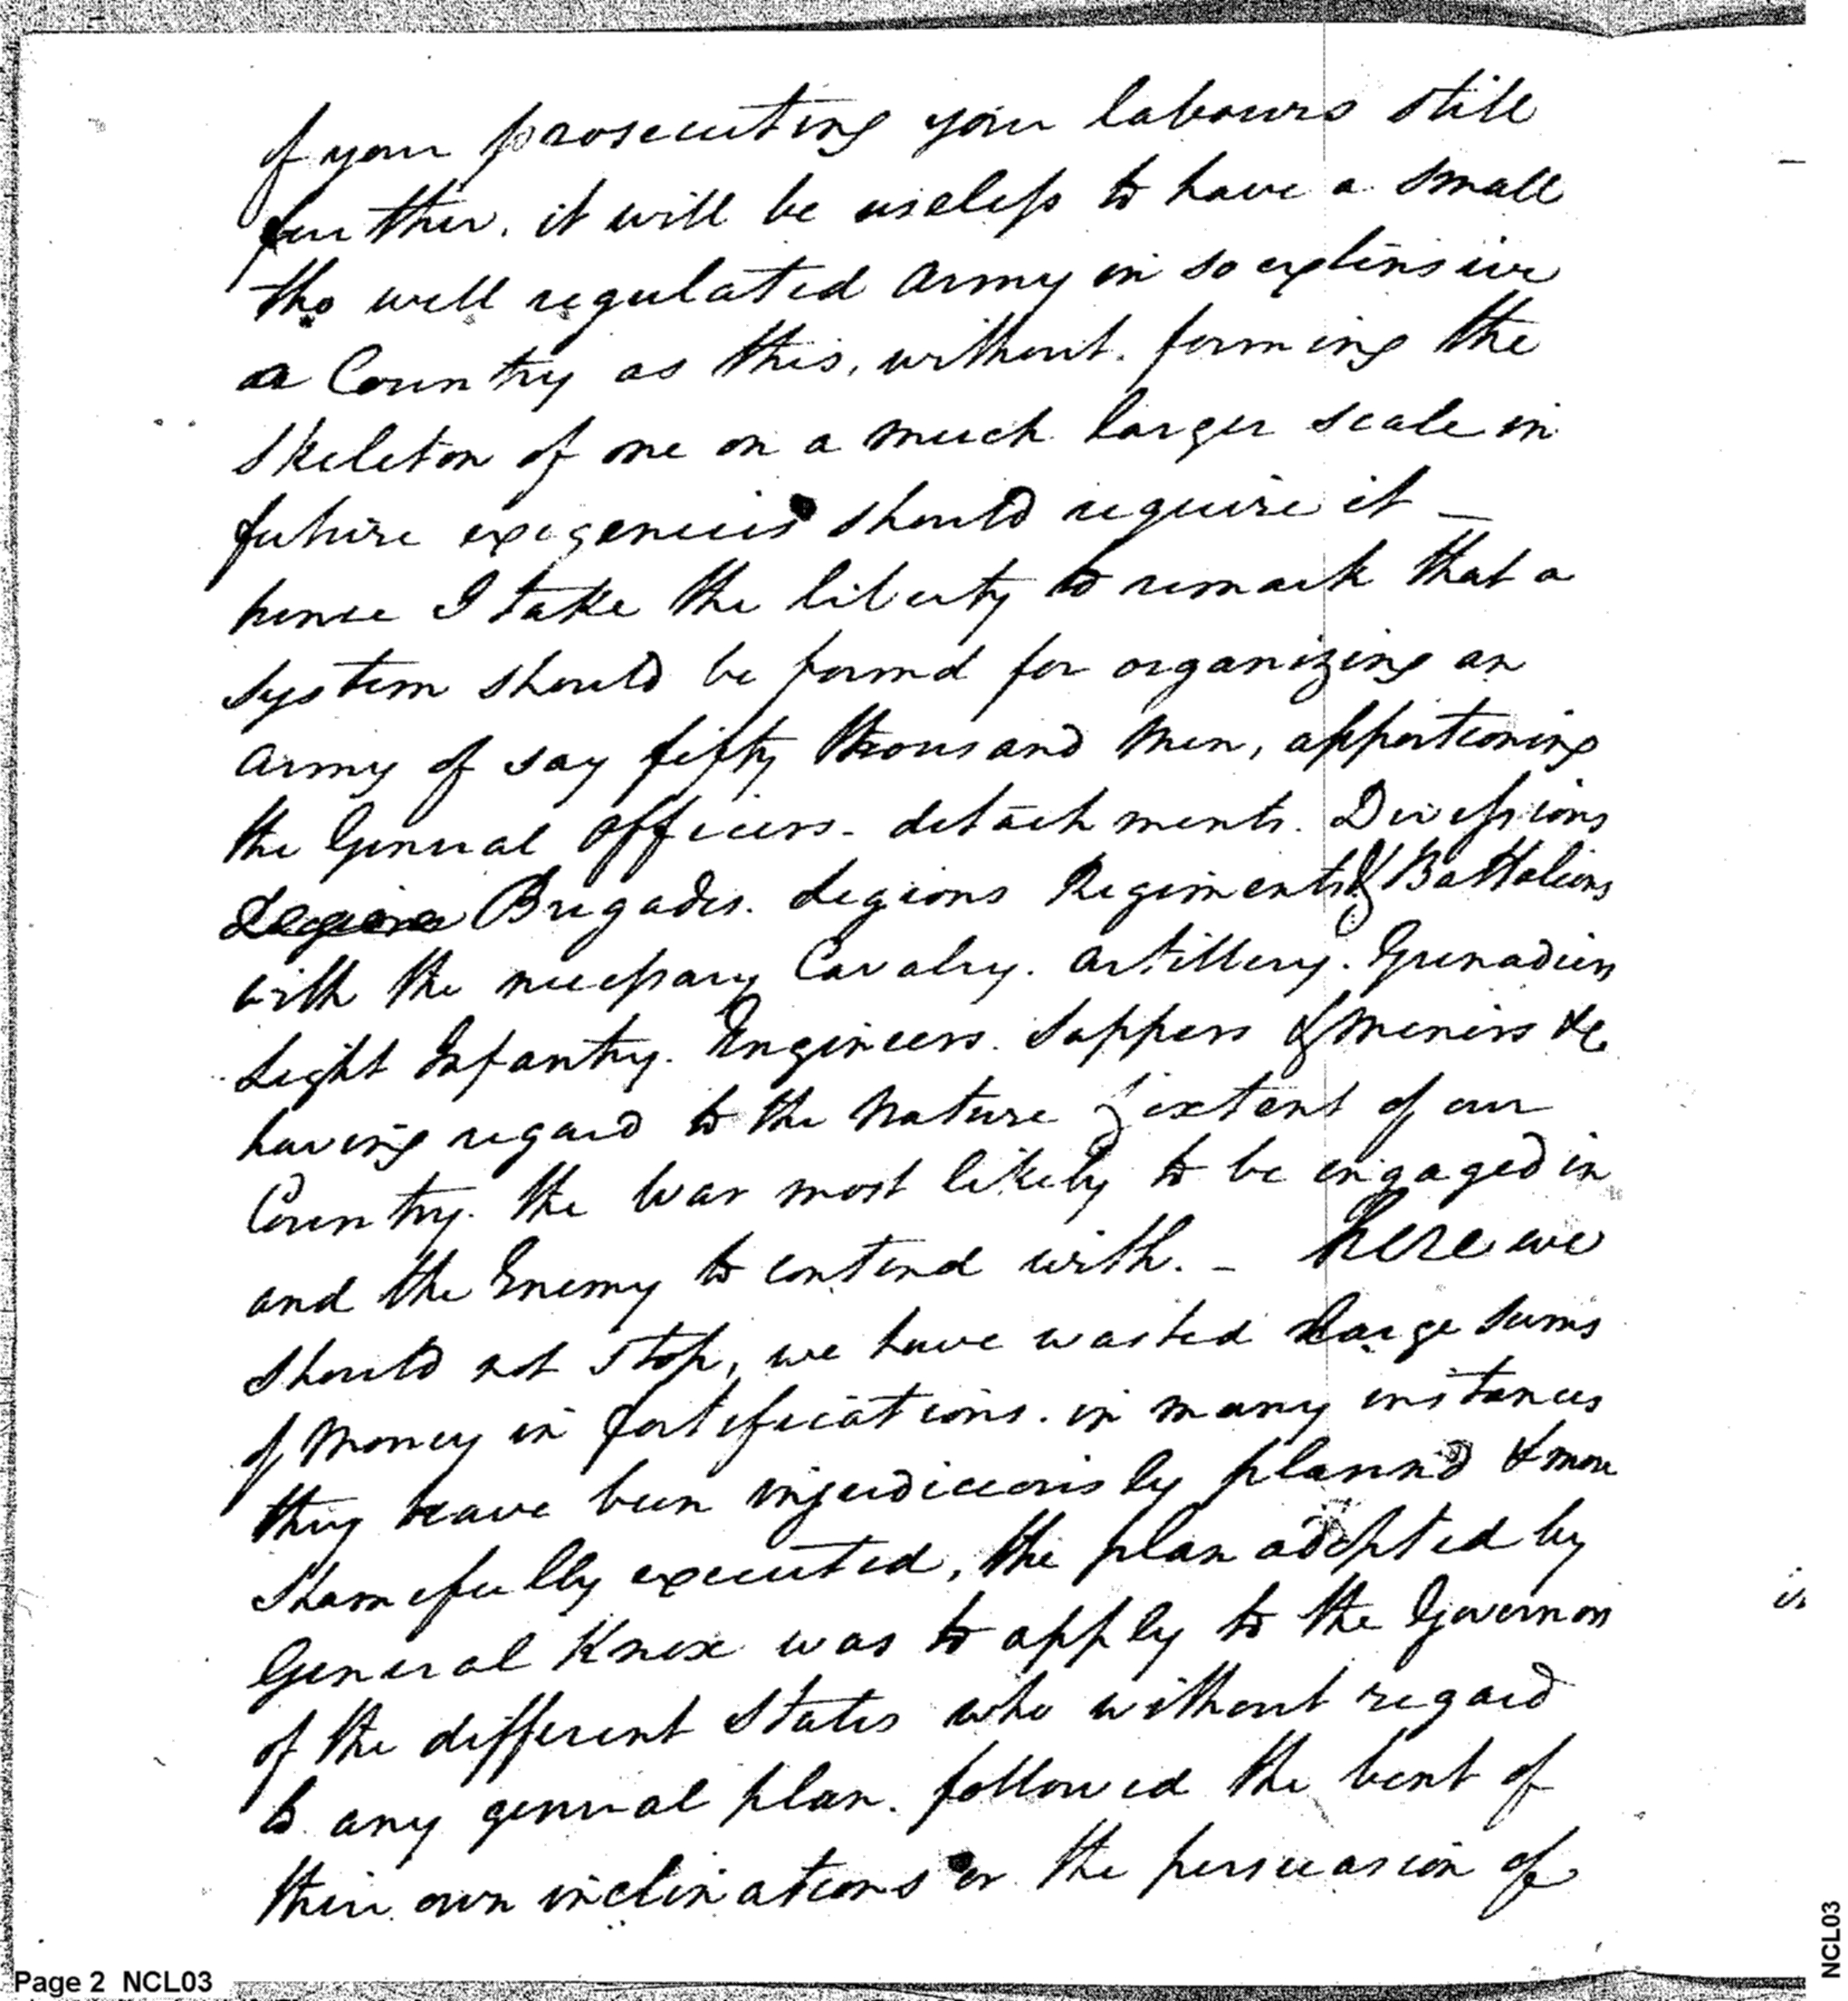 of your prosecuting your labours still
further. it will be useless to have a small
tho well regulated army in so extensive
a Country as this, without forming the
skeleton of one on a much larger scale in
future exigencies should require it —
hence I take the liberty to remark that a
system should be formd for organizing an
army of say fifty thousand men, apportioning
the General officers - detachments. Divissions
Legions Brigades. Legions Regiments & Battalions
with the necessary Cavalry. artillery. Grenadiers
Light Infantry. Engineers. Sappers & Miners &c
having regard to the nature & extent of our
Country. the war most likely to be engaged in
and the Enemy to contend with. — here we
should not stop, we have wasted large sums
of money in fortifications. in many instances
they have been injudiciously plannd & more
shamefully executed, the plan adopted by
General Knox was to apply to the Governors
of the different States who without regard
to any general plan. followed the bent of
their own inclinations or the persuasion of
Page 2 NCL03
NCL03